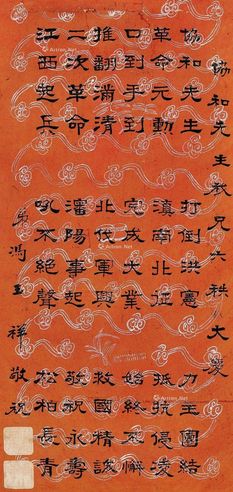 協和先生我兄六秩大慶
協和先生
革命元勳
口到手到
推翻滿清
二次革命
江西起兵
打倒洪憲
滇南北征
完成大業
北伐軍興
瀋陽事起
吼不絕聲
力主團結
抵抗侵凌
始終匪懈
救國精誠
敬祝永壽
松柏長青
弟馮玉祥敬祝